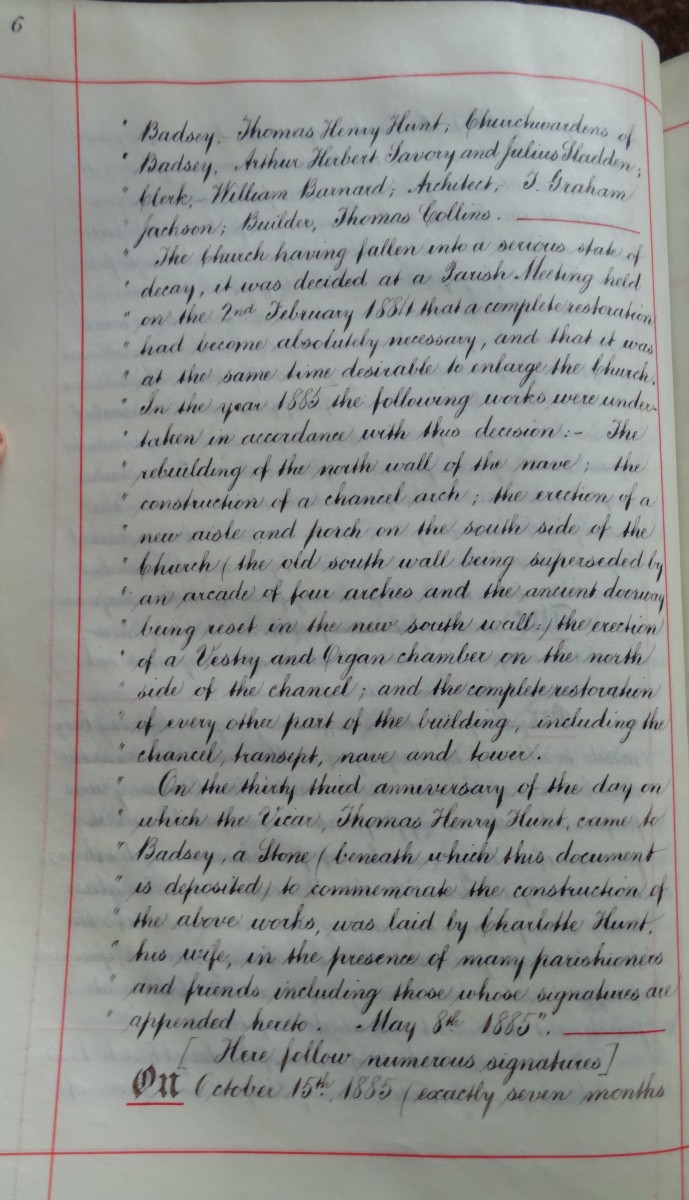 6
" Badsey,- Thomas Henry Hunt; Churchwardens of
" Badsey, Arthur Herbert Savory and Julius Sladden;
" Clerk,- William Barnard; Architect, T. Graham
" Jackson; Builder,- Thomas Collins.
" The Church having fallen into a serious state of
" decay, it was decided at a Parish Meeting held
" on the 2nd February 1884 that a complete restoration
" had become absolutely necessary, and that it was
" at the same time desirable to enlarge the Church.
" In the year 1885 the following works were under-
" taken in accordance with this decision:- The
" rebuilding of the north wall of the nave; the
" construction of a chancel arch; the erection of a
" new aisle and porch on the south side of the
" Church (the old south wall being superseded by
" an arcade of four arches and the ancient doorway
" being reset in the new south wall:) the erection
" of a Vestry and Organ chamber on the north
" side of the chancel; and the complete restoration
" of every other part of the building, including the
" chancel, transept, nave and tower.
" On the thirty third anniversary of the day on
" which the Vicar, Thomas Henry Hunt, came to
" Badsey, a Stone (beneath which this document
" is deposited) to commemorate the construction of
" the above works, was laid by Charlotte Hunt,
" his wife, in the presence of many parishioners
" and friends including those whose signatures are
" appended hereto. May 8th 1885".
[Here follow numerous signatures]
On October 15th, 1885 (exactly seven months